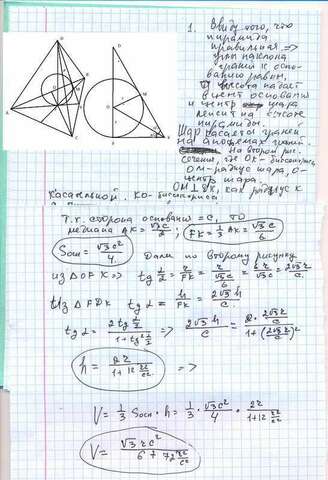 1. Ввиду того, что
пирамида
правильная =>
углы наклона
граней к осно-
ванию равны,
и высота падает
в центр основания
и центр шара
лежит на высоте
пирамиды.
Шар касается граней
на апофемах граней.
на втором рис.
сечения, где OK - биссектриса
OM - радиус шара, O -
центр шара.
OM ⊥ DK, как радиус к
касательной. KO - биссектриса
Т.к. сторона основания = c, то
медиана AK = √3c/2 ; FK = 1/3 AK = √3c/6
Sосн = √3c²/4. Дали по второму рисунку
из △OFK => tg α/2 = r/FK = r/(√3c/6) = 6r/(√3c) = 2√3r/c.
Из △FDK tg α = h/FK = 2√3h/c
tg α = 2tg α/2 / (1+tg² α/2) => 2√3h/c = 2·(2√3r/c) / (1+(2√3r/c)²)
h = 2r / (1+12 r²/c²) =>
V = 1/3 Sосн · h = 1/3 · √3c²/4 · 2r / (1+12 r²/c²)
V = √3rc² / (6+72 r²/c²)